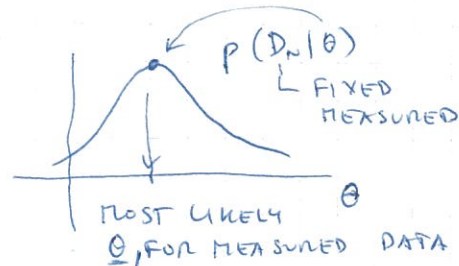 p (D_N | θ)
FIXED
MEASURED
θ
MOST LIKELY
θ, FOR MEASURED DATA